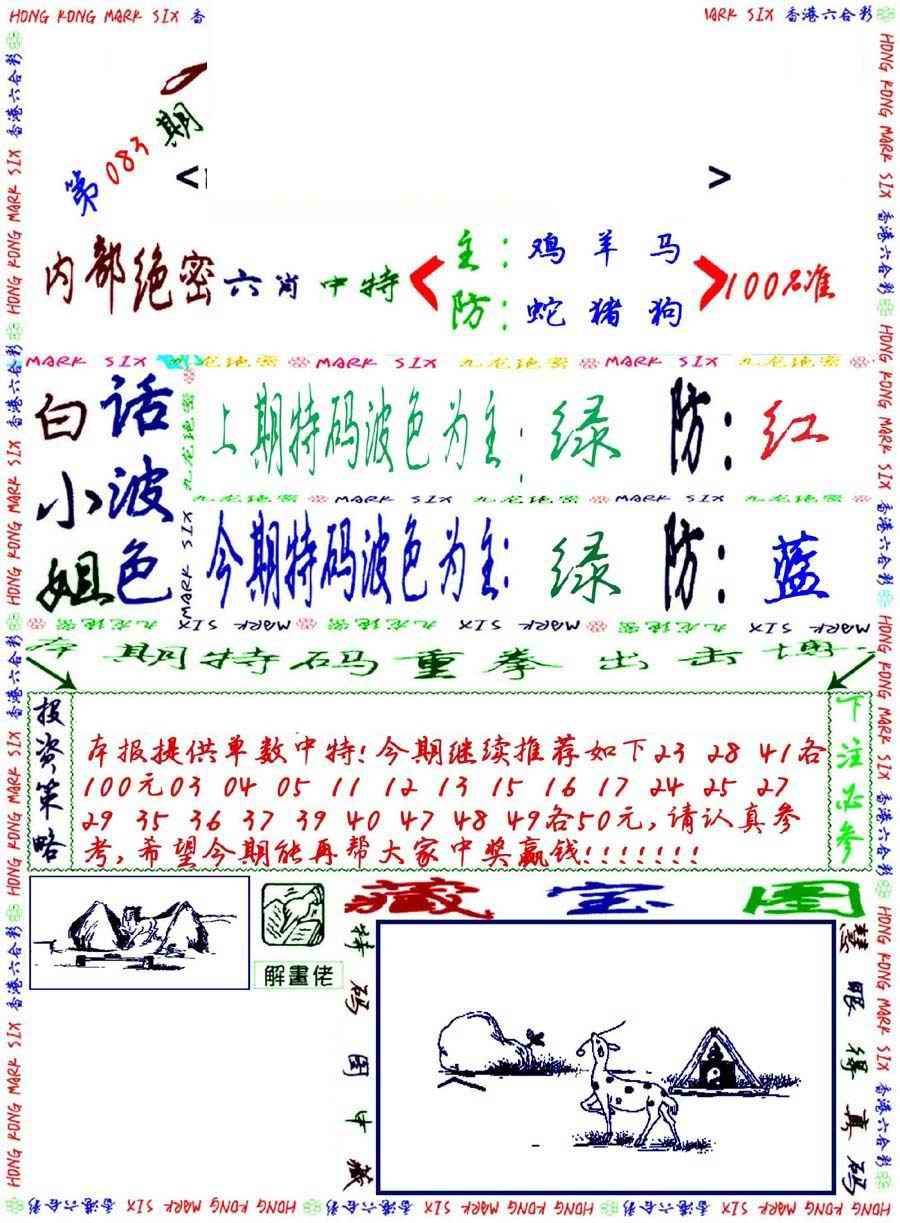 HONG KONG MARK SIX 香
MARK SIX 香港六合彩
第083期
< >
内部绝密六肖中特
主：鸡羊马
防：蛇猪狗
100%准
MARK SIX 九龙绝密 MARK SIX 九龙绝密 MARK SIX 九龙绝密
白话小波姐色
上期特码波色为主：绿 防：红
九龙绝密 MARK SIX 九龙绝密 MARK SIX 九龙绝密 MARK SIX
今期特码波色为主：绿 防：蓝
九龙绝密 MARK SIX 九龙绝密 MARK SIX 九龙绝密 MARK SIX
本期特码重拳出击
投资策略
本报提供单数中特！今期继续推荐如下23 28 41各
100元03 04 05 11 12 13 15 16 17 24 25 27
29 35 36 37 39 40 47 48 49各50元，请认真参
考，希望今期能再帮大家中奖赢钱！！！！！！！
下注必参
解畫佬
藏宝图
特码图中藏
慧眼得真码
HONG KONG MARK SIX 香港六合彩